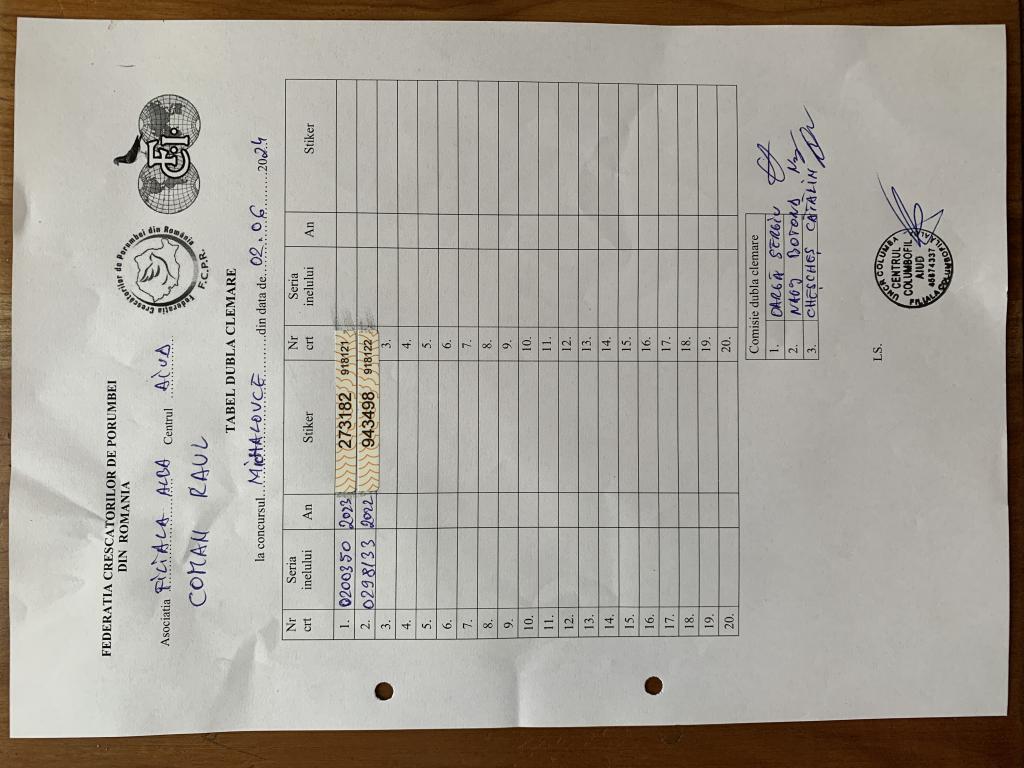 FEDERATIA CRESCATORILOR DE PORUMBEI
DIN ROMANIA
Federatia Crescatorilor de Porumbei din România
F.C.P.R.
FCI
Asociatia FILIALA ALBA Centrul AIUD
COMAN RAUL
TABEL DUBLA CLEMARE
la concursul MICHALOVCE din data de 02.06 2024
Nr crt Seria inelului An Stiker Nr crt Seria inelului An Stiker
1. 0200350 2023 273182 918121
2. 0298133 2022 943498 918122
3. 3.
4. 4.
5. 5.
6. 6.
7. 7.
8. 8.
9. 9.
10. 10.
11. 11.
12. 12.
13. 13.
14. 14.
15. 15.
16. 16.
17. 17.
18. 18.
19. 19.
20. 20.
Comisie dubla clemare
1. OARGĂ SERGIU
2. NAGY BOTOND
3. CHESCHEȘ CATALIN
LS.
UNCR COLUMBA
CENTRUL
COLUMBOFIL
AIUD
FILIALA COLUMBOFILA